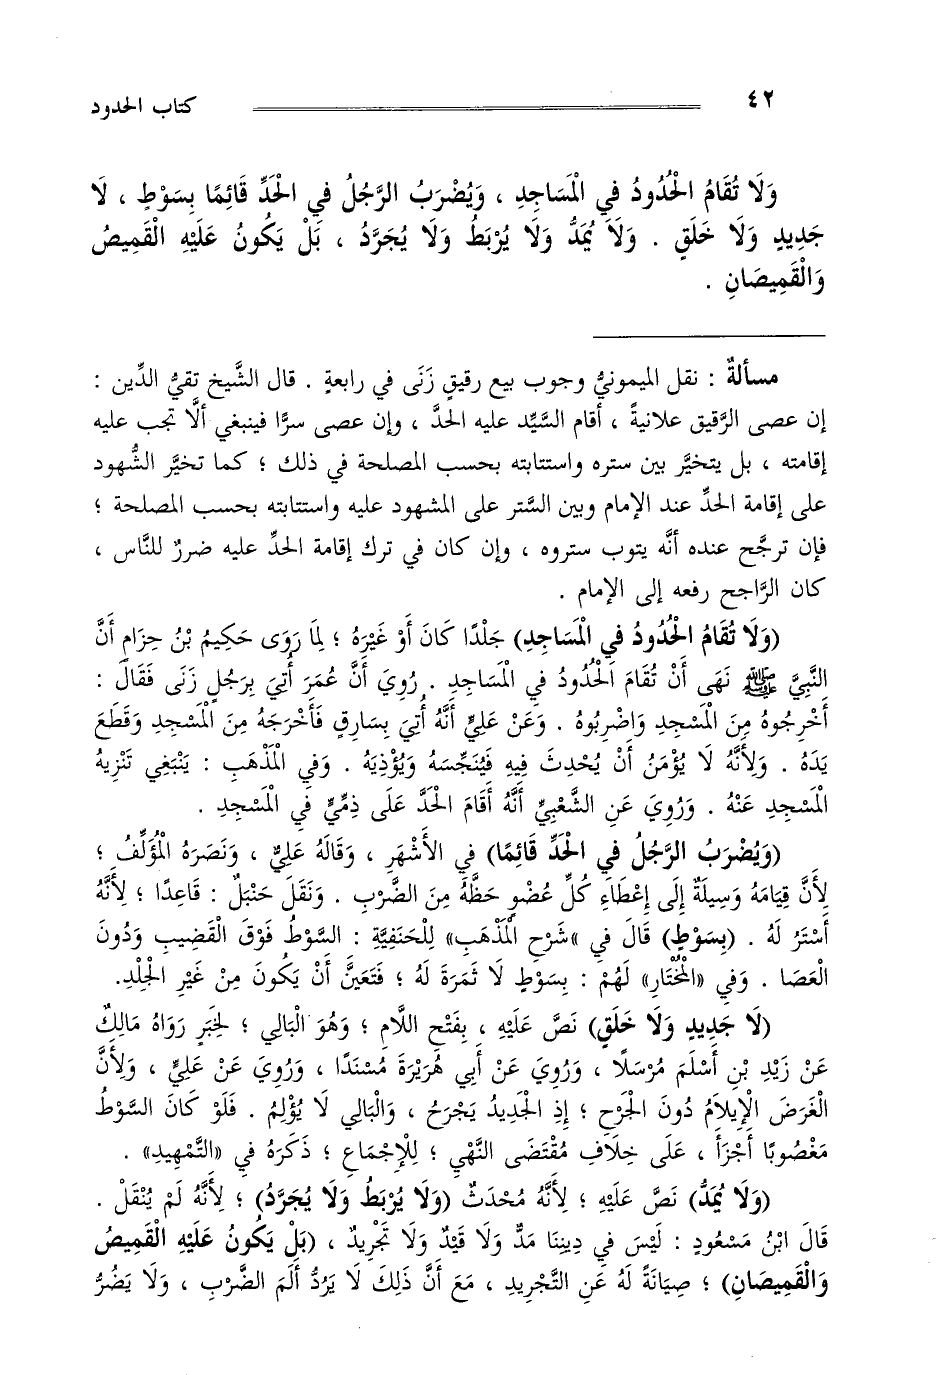 ٤٢
كتاب الحدود
وَلَا تُقَامُ الْحُدُودُ فِي الْمَسَاجِدِ ، وَيُضْرَبُ الرَّجُلُ فِي الْحَدِّ قَائِمًا بِسَوْطٍ ، لَا
جَدِيدٍ وَلَا خَلَقٍ . وَلَا يُمَدُّ وَلَا يُرْبَطُ وَلَا يُجَرَّدُ ، بَلْ يَكُونُ عَلَيْهِ الْقَمِيصُ
وَالْقَمِيصَانِ .
مسألةٌ : نقل الميمونيُّ وجوب بيع رقيقٍ زَنَى في رابعةٍ . قال الشَّيخ تقيُّ الدِّين :
إن عصى الرَّقيق علانيةً ، أقام السَّيِّد عليه الحدَّ ، وإن عصى سرًّا فينبغي ألَّا تجب عليه
إقامته ، بل يتخيَّر بين ستره واستتابته بحسب المصلحة في ذلك ؛ كما تخيَّر الشُّهود
على إقامة الحدِّ عند الإمام وبين السَّتر على المشهود عليه واستتابته بحسب المصلحة ؛
فإن ترجَّح عنده أنَّه يتوب ستروه ، وإن كان في ترك إقامة الحدِّ عليه ضررٌ للنَّاس ،
كان الرَّاجح رفعه إلى الإمام .
(وَلَا تُقَامُ الْحُدُودُ فِي الْمَسَاجِدِ) جَلْدًا كَانَ أَوْ غَيْرَهُ ؛ لِمَا رَوَى حَكِيمُ بْنُ حِزَامٍ أَنَّ
النَّبِيَّ ﷺ نَهَى أَنْ تُقَامَ الْحُدُودُ فِي الْمَسَاجِدِ . رُوِيَ أَنَّ عُمَرَ أُتِيَ بِرَجُلٍ زَنَى فَقَالَ :
أَخْرِجُوهُ مِنَ الْمَسْجِدِ وَاضْرِبُوهُ . وَعَنْ عَلِيٍّ أَنَّهُ أُتِيَ بِسَارِقٍ فَأَخْرَجَهُ مِنَ الْمَسْجِدِ وَقَطَعَ
يَدَهُ . وَلِأَنَّهُ لَا يُؤْمَنُ أَنْ يُحْدِثَ فِيهِ فَيُنَجِّسَهُ وَيُؤْذِيَهُ . وَفِي الْمَذْهَبِ : يَنْبَغِي تَنْزِيهُ
الْمَسْجِدِ عَنْهُ . وَرُوِيَ عَنِ الشَّعْبِيِّ أَنَّهُ أَقَامَ الْحَدَّ عَلَى ذِمِّيٍّ فِي الْمَسْجِدِ .
(وَيُضْرَبُ الرَّجُلُ فِي الْحَدِّ قَائِمًا) فِي الأَشْهَرِ ، وَقَالَهُ عَلِيٌّ ، وَنَصَرَهُ الْمُؤَلِّفُ ؛
لِأَنَّ قِيَامَهُ وَسِيلَةٌ إِلَى إِعْطَاءِ كُلِّ عُضْوٍ حَظَّهُ مِنَ الضَّرْبِ . وَنَقَلَ حَنْبَلٌ : قَاعِدًا ؛ لِأَنَّهُ
أَسْتَرُ لَهُ . (بِسَوْطٍ) قَالَ فِي «شَرْحِ الْمَذْهَبِ» لِلْحَنَفِيَّةِ : السَّوْطُ فَوْقَ الْقَضِيبِ وَدُونَ
الْعَصَا . وَفِي «الْمُخْتَارِ» لَهُمْ : بِسَوْطٍ لَا ثَمَرَةَ لَهُ ؛ فَتَعَيَّنَ أَنْ يَكُونَ مِنْ غَيْرِ الْجِلْدِ.
(لَا جَدِيدٍ وَلَا خَلَقٍ) نَصَّ عَلَيْهِ ، بِفَتْحِ اللَّامِ ؛ وَهُوَ الْبَالِي ؛ لِخَبَرٍ رَوَاهُ مَالِكٌ
عَنْ زَيْدِ بْنِ أَسْلَمَ مُرْسَلًا ، وَرُوِيَ عَنْ أَبِي هُرَيْرَةَ مُسْنَدًا ، وَرُوِيَ عَنْ عَلِيٍّ ، وَلِأَنَّ
الْغَرَضَ الْإِيلَامُ دُونَ الْجَرْحِ ؛ إِذِ الْجَدِيدُ يَجْرَحُ ، وَالْبَالِي لَا يُؤْلِمُ . فَلَوْ كَانَ السَّوْطُ
مَغْصُوبًا أَجْزَأَ ، عَلَى خِلَافِ مُقْتَضَى النَّهْيِ ؛ لِلْإِجْمَاعِ ؛ ذَكَرَهُ فِي «التَّمْهِيدِ» .
(وَلَا يُمَدُّ) نَصَّ عَلَيْهِ ؛ لِأَنَّهُ مُحْدَثٌ (وَلَا يُرْبَطُ وَلَا يُجَرَّدُ) ؛ لِأَنَّهُ لَمْ يُنْقَلْ .
قَالَ ابْنُ مَسْعُودٍ : لَيْسَ فِي دِينِنَا مَدٌّ وَلَا قَيْدٌ وَلَا تَجْرِيدٌ ، (بَلْ يَكُونُ عَلَيْهِ الْقَمِيصُ
وَالْقَمِيصَانِ) ؛ صِيَانَةً لَهُ عَنِ التَّجْرِيدِ ، مَعَ أَنَّ ذَلِكَ لَا يَرُدُّ أَلَمَ الضَّرْبِ ، وَلَا يَضُرُّ